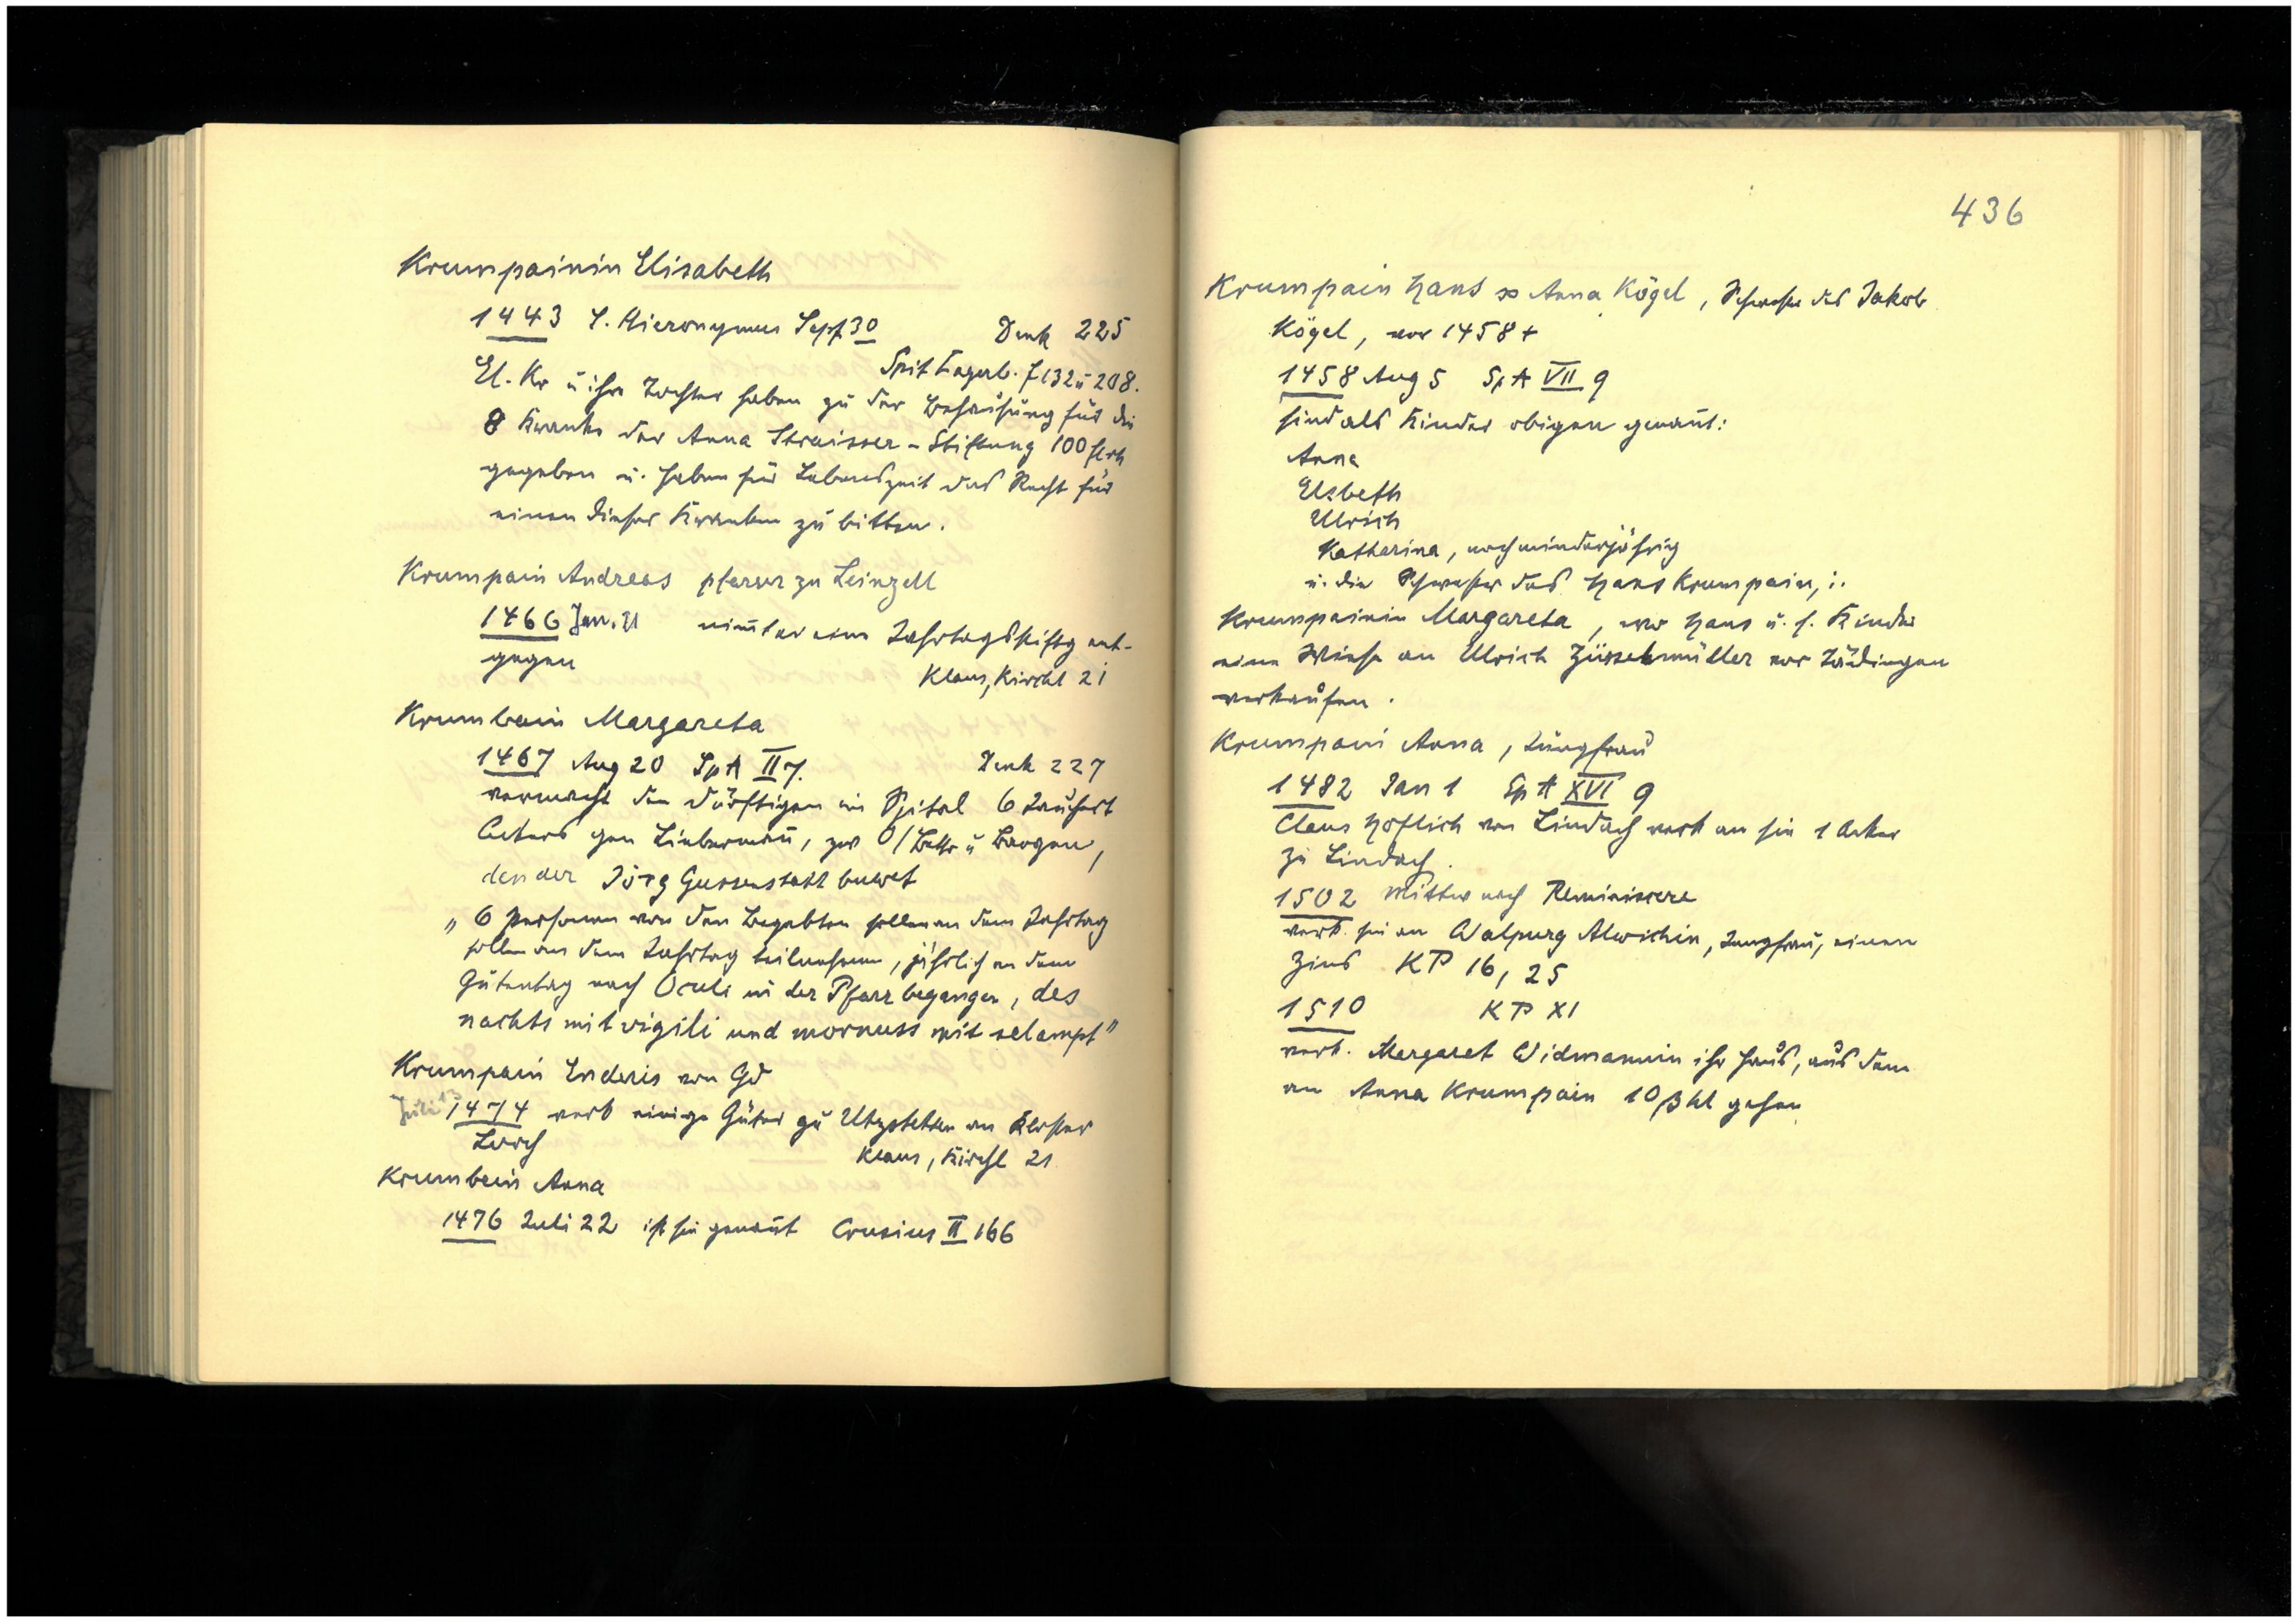 Krumpainin Elisabeth
1443 S. Hieronymus Sept 30 Denk 225
Spit Lagerb. f 132 ü 208.
El. Kr ü ihre Tochter haben zü der Behaüsüng für die
8 Kranke der Anna Straisser-Stiftung 100 fl rh
gegeben ü. haben für Lebenszeit das Recht für
einen dieser Kranken zü bitten.
Krumpain Andreas pfarrer zu Leinzell
1466 Jan. 11 nimt er eine Jahrtagsstiftg ent-
gegen
Klaus, Kirchl 21
Krumbain Margareta
1467 Aug 20 SpA II 7. Denk 227
vermacht den dürftigen im Spital 6 Jaüchert
Ackers gen, zw O/Bettr ü Bargen,
den der Jörg Gussenstatt buwet
„6 Personen von den Begabten sollen an dem Jahrtag
sollen an dem Jahrtag teilnehmen, jährlich an dem
Gütentag nach Oculi in der Pfarr begangen, des
nachts mit vigili und mornuss mit selampt"
Krumpain Enderis von Gd
Juli 13 1474 verk einige Güter zü Utzstetten an Kloster
Lorch
Klaus, Kirchl 21
Krumbein Anna
1476 Juli 22 ist sie genañt Crusius II 166
436
Krumpain Hans ∞ Anna Kögel, Schwester des Jakob
Kögel, vor 1458 +
1458 Aug 5 SpA VII 9
sind als Kinder obigen genañt:
Anna
Elsbeth
Ulrich
Katharina, noch minderjährig
ü. die Schwester des Hans Krumpain, :.
Krumpainin Margareta, wo Hans ü. s. Kinder
eine Wiese an Ulrich Züsselmüller vor
verkaüfen.
Krumpain Anna, Jüngfraü
1482 Jan 1 SpA XVI 9
Claus Höflich von Lindach verk an sie 1 Acker
zü Lindach.
1502 Mittw nach Reminiscere
verk. sie an Walpurg Alwichin, Jungfraü, einen
Zins KP 16, 25
1510 KP XI
verk. Margaret Widmannin ihr Haüs, aüs dem
an Anna Krumpain 10 ß hl gehen